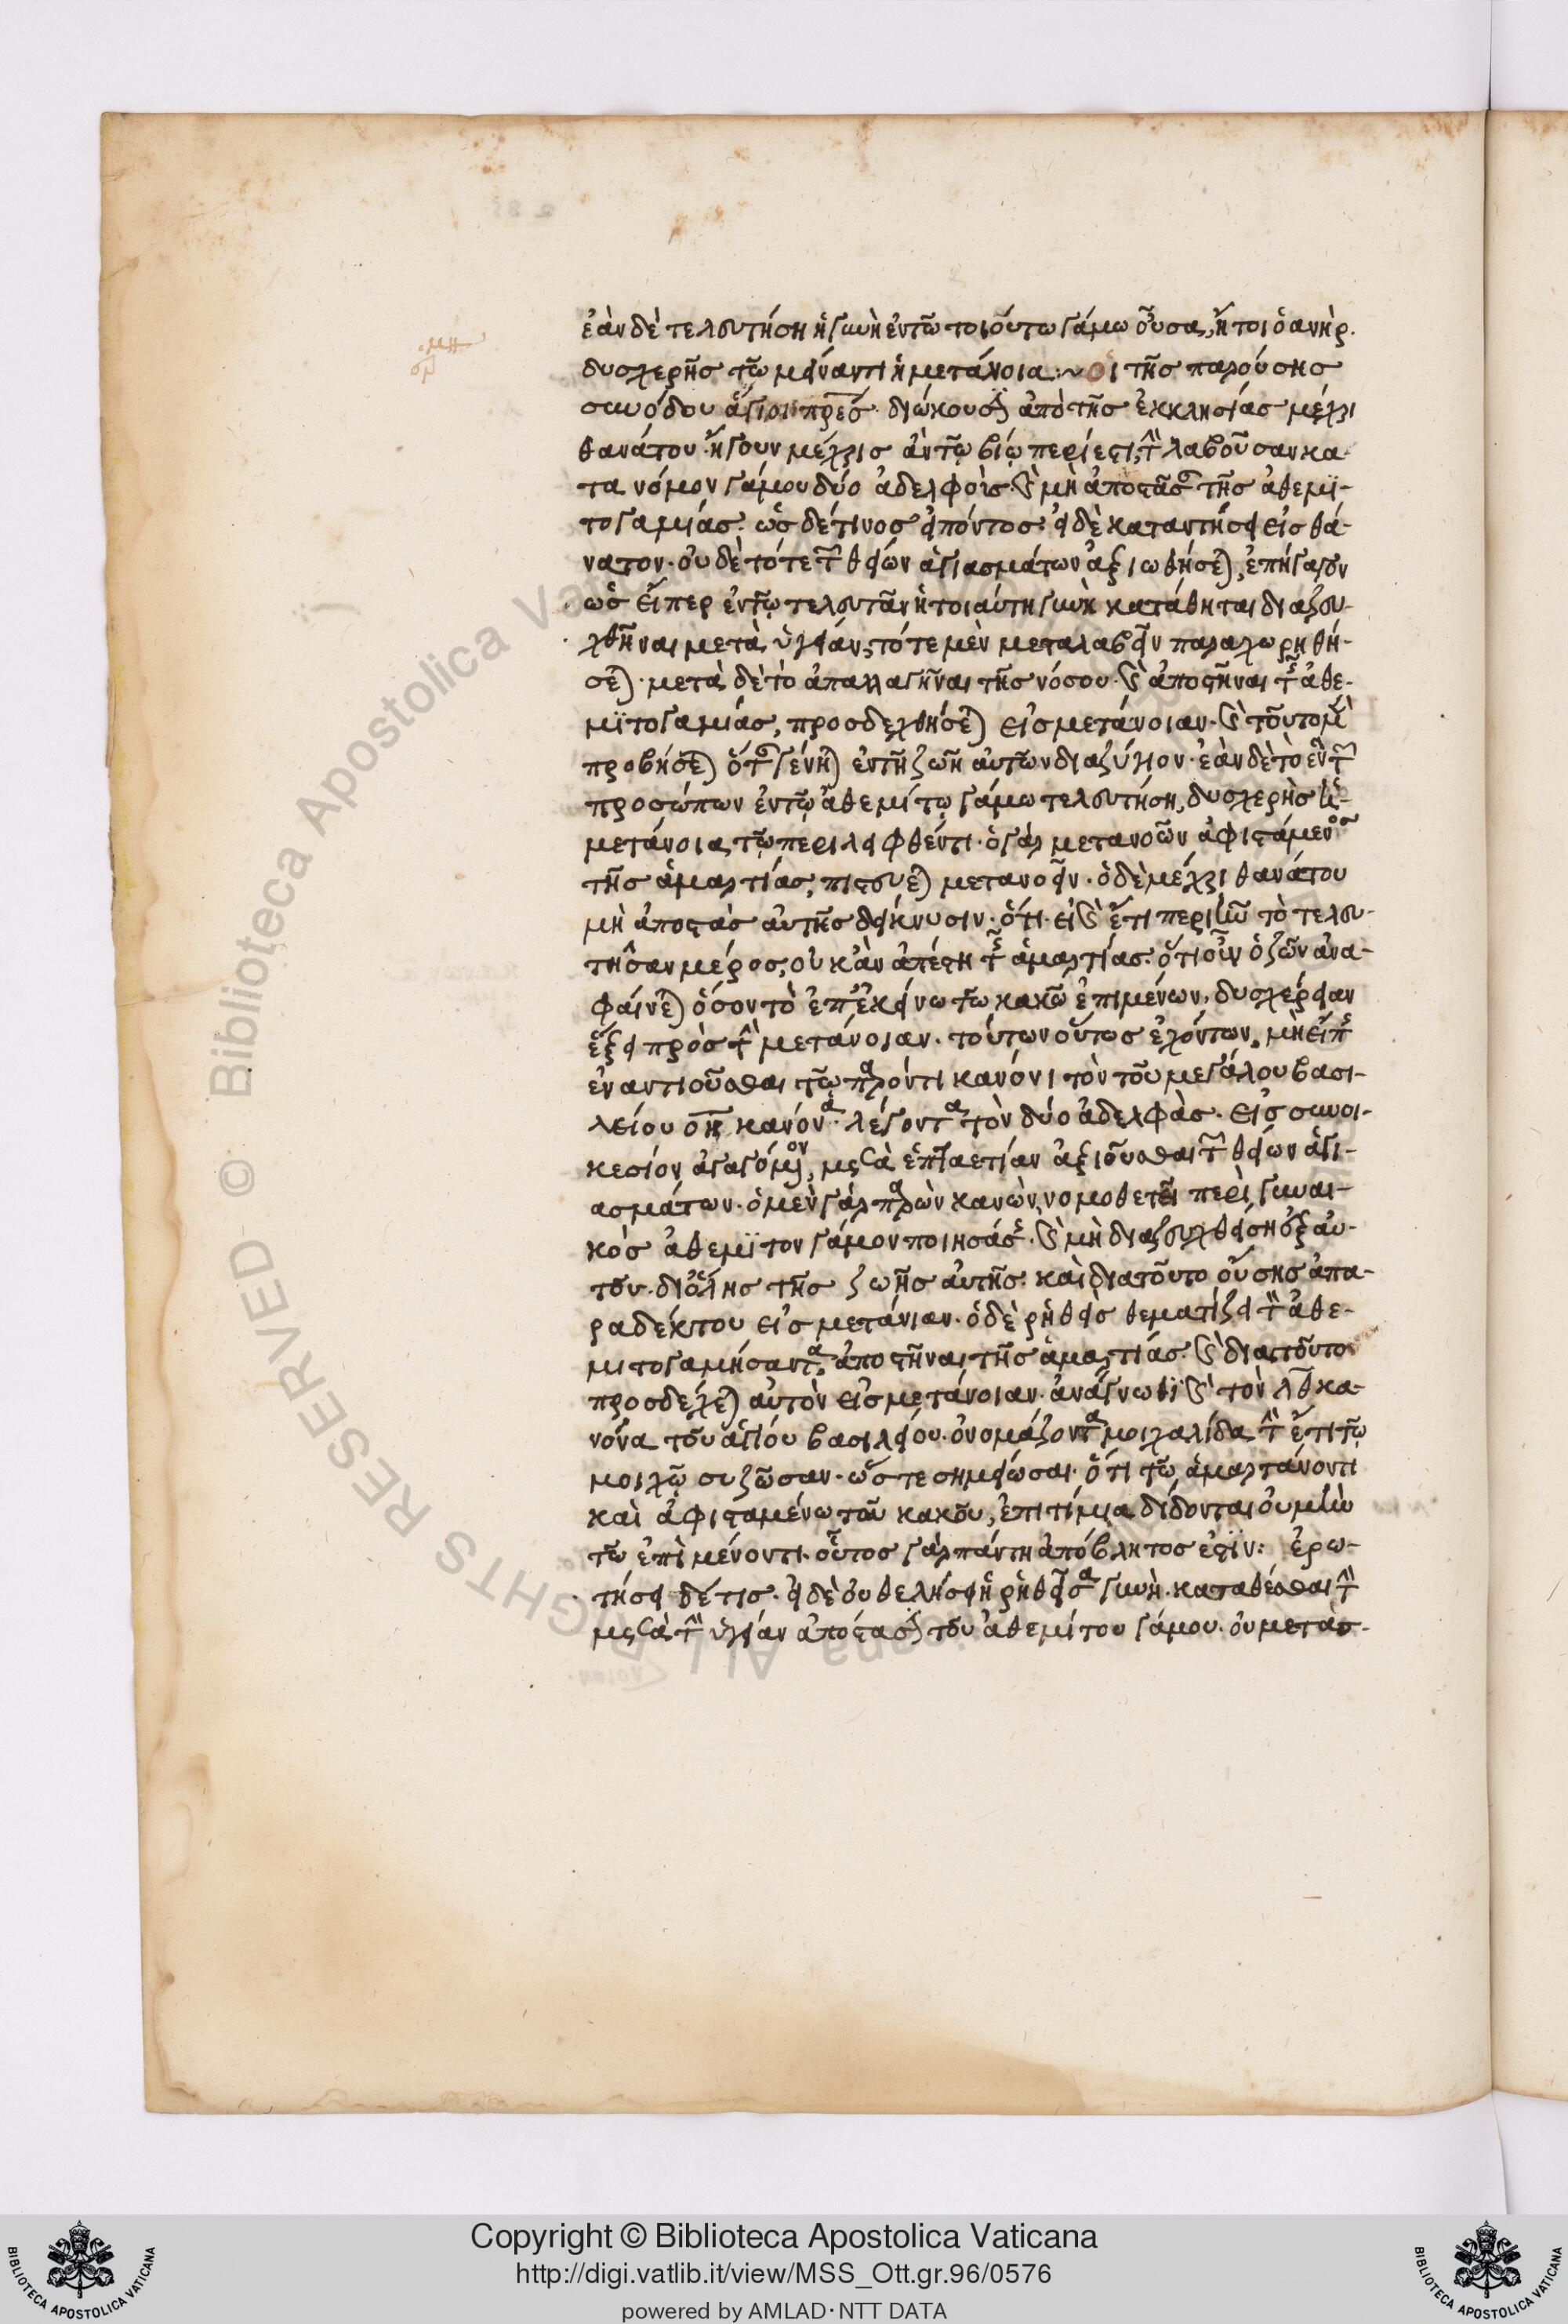 ἐὰν δὲ τελευτήση ἡ γυνὴ ἐν τῶ τοιούτω γάμω οὖσα, ἤτοι ὁ ἀνὴρ.
δυσχερὴς τῶ μείναντι ἡ μετάνοια :~ Οἱ τῆς παρούσης
συνόδου ἅγιοι πρες διώκουσιν ἀπὸ τῆς ἐκκλησίας μέχρι
θανάτου· ἤγουν μέχρις ἂν τῶ βίω περίεστι, τὴν λαβοῦσαν κα-
τα νόμον γάμου δύο ἀδελφοὺς· καὶ μὴ ἀποστᾶσαν τῆς ἀθεμϊ-
τογαμίας. ὡς δέ τινος εἰπόντος· εἰ δὲ καταντήσει εἰς θά-
νατον· οὐδὲ τότε τῶν θείων ἁγιασμάτων ἀξιωθήσεται, ἐπήγαγον
ὡς εἴπερ ἐν τῶ τελευτᾶν ἡ τοιαύτη γυνὴ κατάθηται διαζευ-
χθῆναι μετὰ ὑγείαν, τότε μὲν μεταλαβεῖν παραχωρηθή-
σεται· μετὰ δὲ τὸ ἀπαλλαγῆναι τῆς νόσου· καὶ ἀποστῆναι τῆς ἀθε-
μϊτογαμίας, προσδεχθήσεται εἰς μετάνοιαν· καὶ τοῦτο μὲν
προβήσεται ὅταν γένηται ἐν τῆ ζωῆ αὐτῶν διαζύγιον· ἐὰν δὲ τὸ ἓν τῶν
προσώπων ἐν τῶ ἀθεμίτω γάμω τελευτήση, δυσχερὴς ἡ
μετάνοια τῶ περιλειφθέντι· ὁ γὰρ μετανοῶν ἀφιστάμενος
τῆς ἁμαρτίας, πιστεύεται μετανοεῖν· ὁ δὲ μέχρι θανάτου
μὴ ἀποστὰς αὐτῆς δείκνυσιν· ὅτι· εἰ καὶ ἔτι περιῆν τὸ τελευ-
τῆσαν μέρος, οὐκ ἂν ἀπέστη τῆς ἁμαρτίας. ὅτι οὖν ὁ ζῶν ἀνα-
φαίνεται ὅσον τὸ ἐπ' ἐκείνω τῶ κακῶ ἐπιμένων, δυσχέρειαν
ἕξει πρὸς τὴν μετάνοιαν. τούτων οὕτως ἐχόντων, μὴ εἴπης
ἐναντιοῦσθαι τῶ παρόντι κανόνι τὸν τοῦ μεγάλου βασι-
λείου οη κανόνα· λέγοντα τὸν δύο ἀδελφὰς· εἰς συνοι-
κεσίον ἀγαγόμενον, μετὰ ἑπταετίαν ἀξιοῦσθαι τῶν θείων ἁγι-
ασμάτων· ὁ μὲν γὰρ παρὼν κανὼν, νομοθετεῖ περὶ γυναι-
κὸς ἀθεμϊτον γάμον ποιησάσης· καὶ μὴ διαζευχθείσης ἐξ αὐ-
τοῦ· δι' ὅλης τῆς ζωῆς αὐτῆς· καὶ διατοῦτο οὔσης ἀπα-
ραδέκτου εἰς μετάνιαν· ὁ δὲ ῥηθεὶς θεματίζει τὸν ἀθε-
μιτογαμήσαντα, ἀποστῆναι τῆς ἁμαρτίας· καὶ διατοῦτο
προσδέχεται αὐτὸν εἰς μετάνοιαν· ἀνάγνωθϊ καὶ τὸν λθ κα-
νόνα τοῦ ἁγίου βασιλείου· ὀνομάζοντα μοιχαλίδα τὴν ἔτι τῶ
μοιχῶ συζῶσαν· ὥστε σημείωσαι· ὅτι τῶ ἁμαρτάνοντι
καὶ ἀφισταμένω τοῦ κακοῦ, ἐπιτίμια δίδονται οὐ μὴν
τῶ ἐπιμένοντι. οὗτος γὰρ πάντη ἀπόβλητος ἐστϊν: ἐρω-
τήσει δέ τις. εἰ δὲ οὐ θελήσει ἡ ῥηθεῖσα γυνὴ· καταθέσθαι τὴν
μετὰ τὴν ὑγείαν ἀπόστασιν τοῦ ἀθεμίτου γάμου. οὐ μετασ-